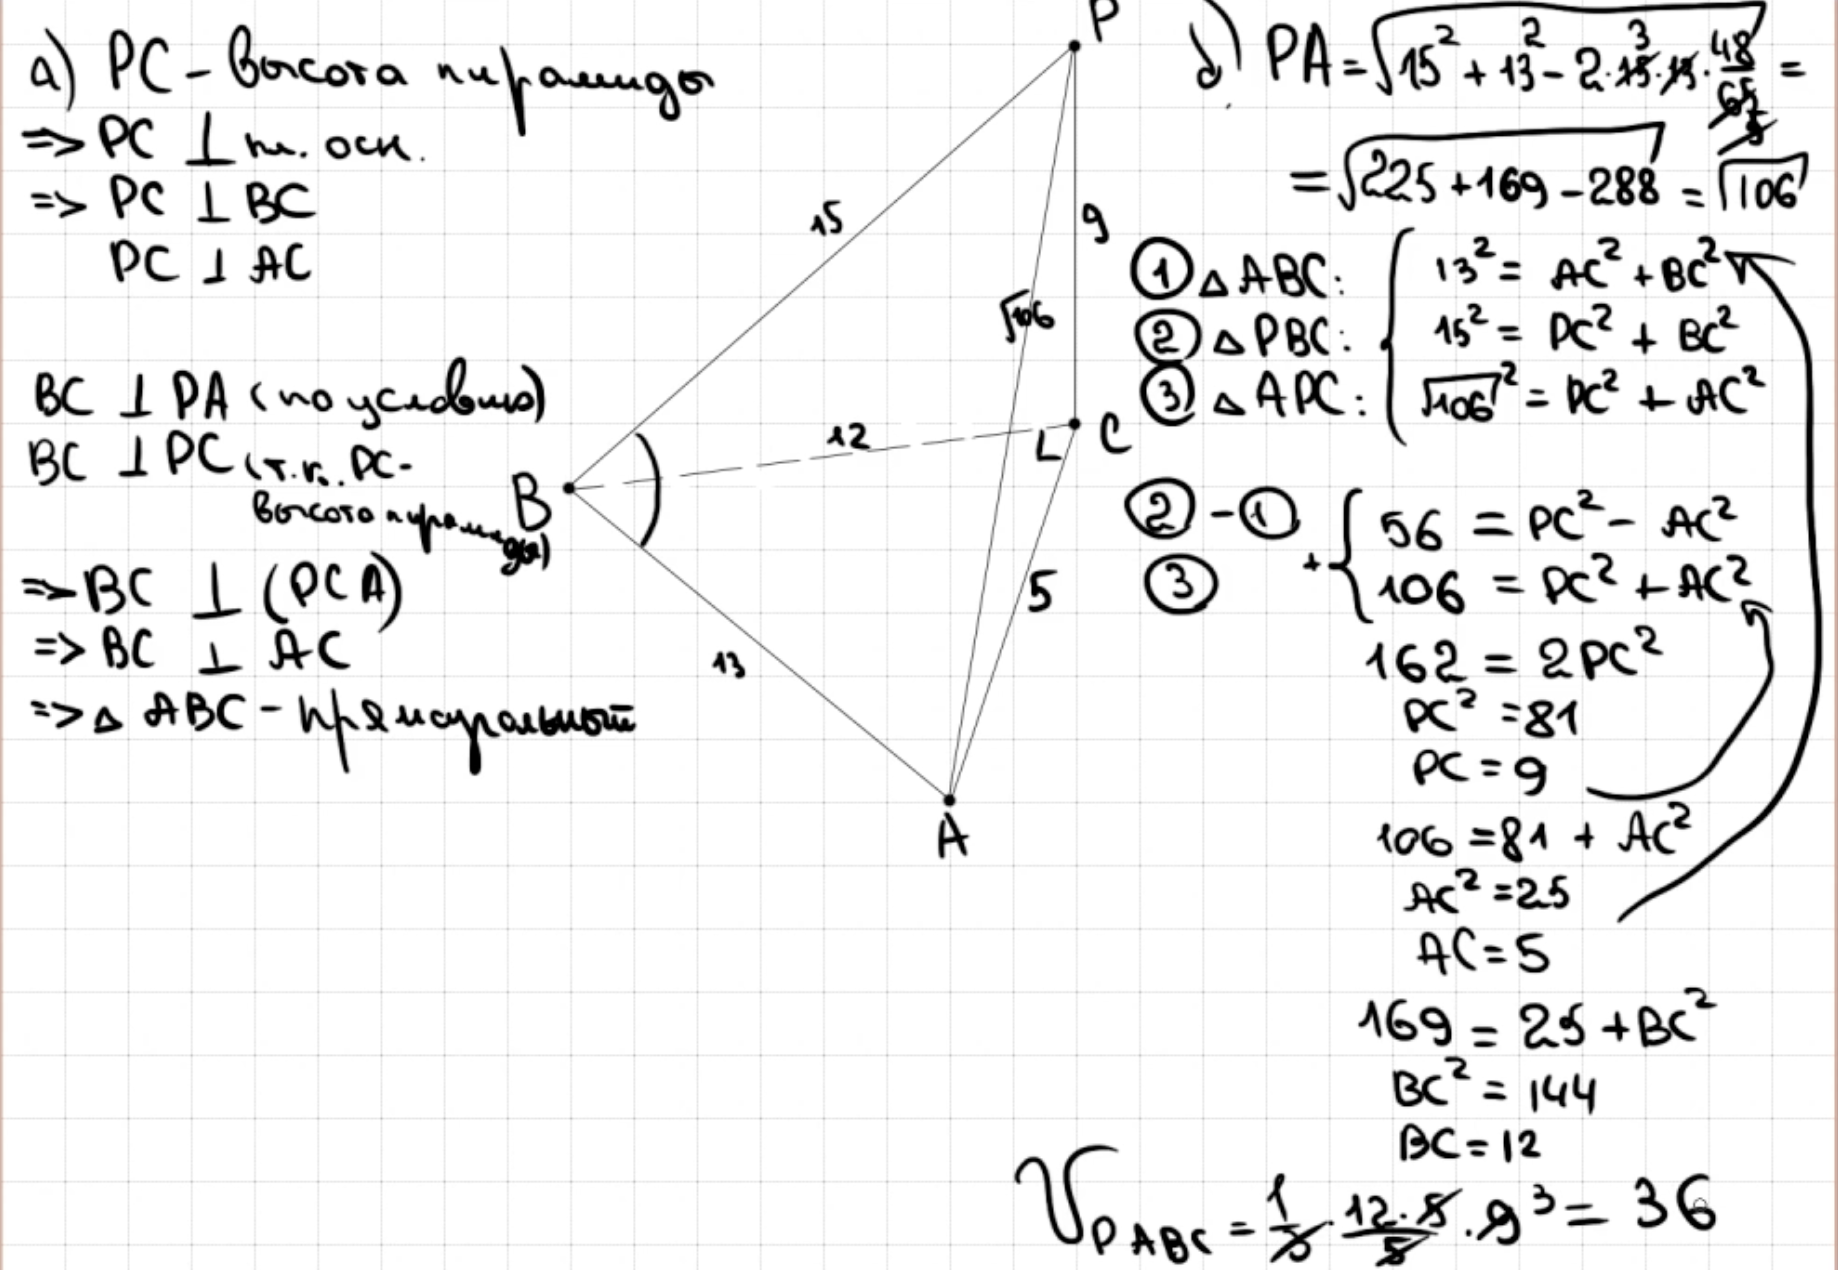 а) PC - высота пирамиды
=> PC ⊥ пл. осн.
=> PC ⊥ BC
PC ⊥ AC
BC ⊥ PA (по условию)
BC ⊥ PC (т.к. PC-
высота пирамиды)
=> BC ⊥ (PCA)
=> BC ⊥ AC
=> △ ABC - прямоугольный
P
15
9
√106
12
C
B
5
13
A
б) PA = √15² + 13² - 2·15·13· 48/65 =
3
5
= √225 + 169 - 288 = √106
① △ ABC: 13² = AC² + BC²
② △ PBC: 15² = PC² + BC²
③ △ APC: √106² = PC² + AC²
② - ① 56 = PC² - AC²
③ + 106 = PC² + AC²
162 = 2PC²
PC² = 81
PC = 9
106 = 81 + AC²
AC² = 25
AC = 5
169 = 25 + BC²
BC² = 144
BC = 12
V PABC = 1/3 · 12·5/5 · 9 3 = 36